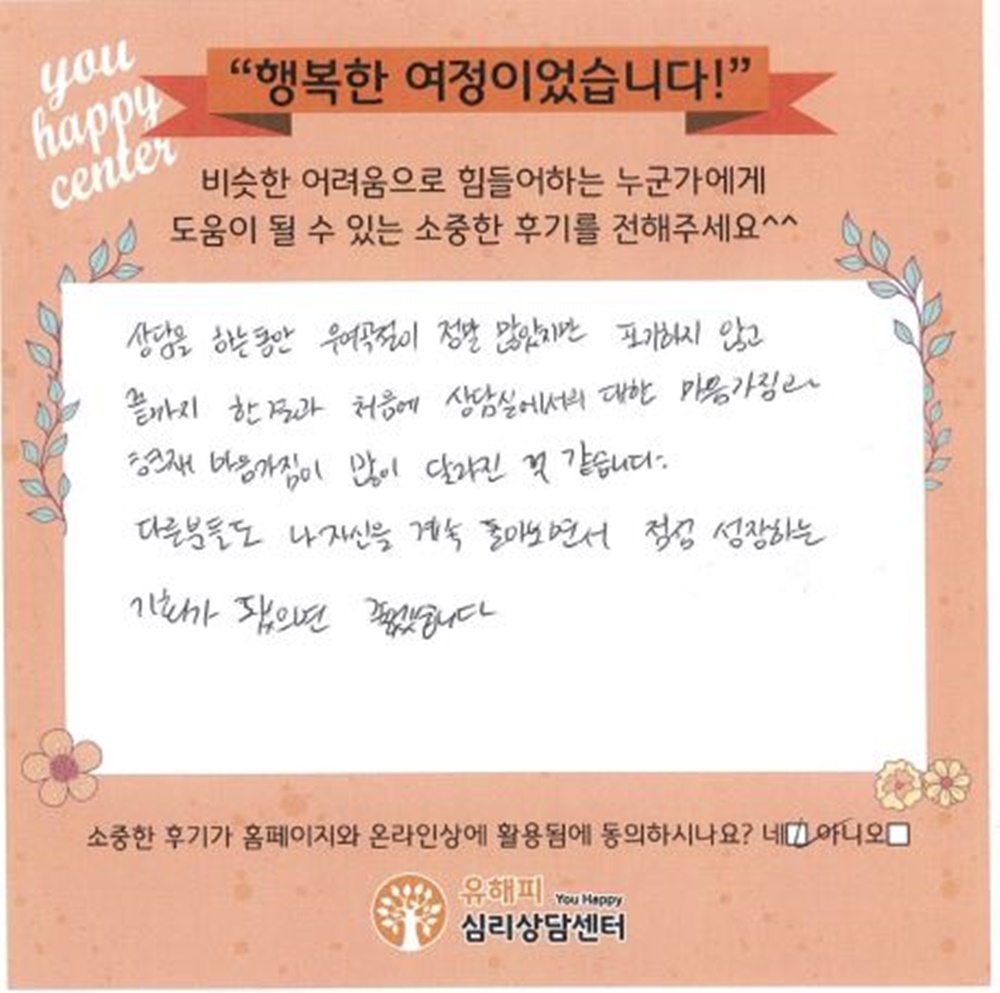 you
happy
center
“행복한 여정이었습니다!”
비슷한 어려움으로 힘들어하는 누군가에게
도움이 될 수 있는 소중한 후기를 전해주세요^^
상담을 하는동안 우여곡절이 정말 많았지만 포기하지 않고
끝까지 한 결과 처음에 상담실에서의 대한 마음가짐과
현재 마음가짐이 많이 달라진 것 같습니다.
다른분들도 나 자신을 계속 돌아보면서 점점 성장하는
기회가 됐으면 좋겠습니다
소중한 후기가 홈페이지와 온라인상에 활용됨에 동의하시나요? 네 아니오
유해피 You Happy
심리상담센터